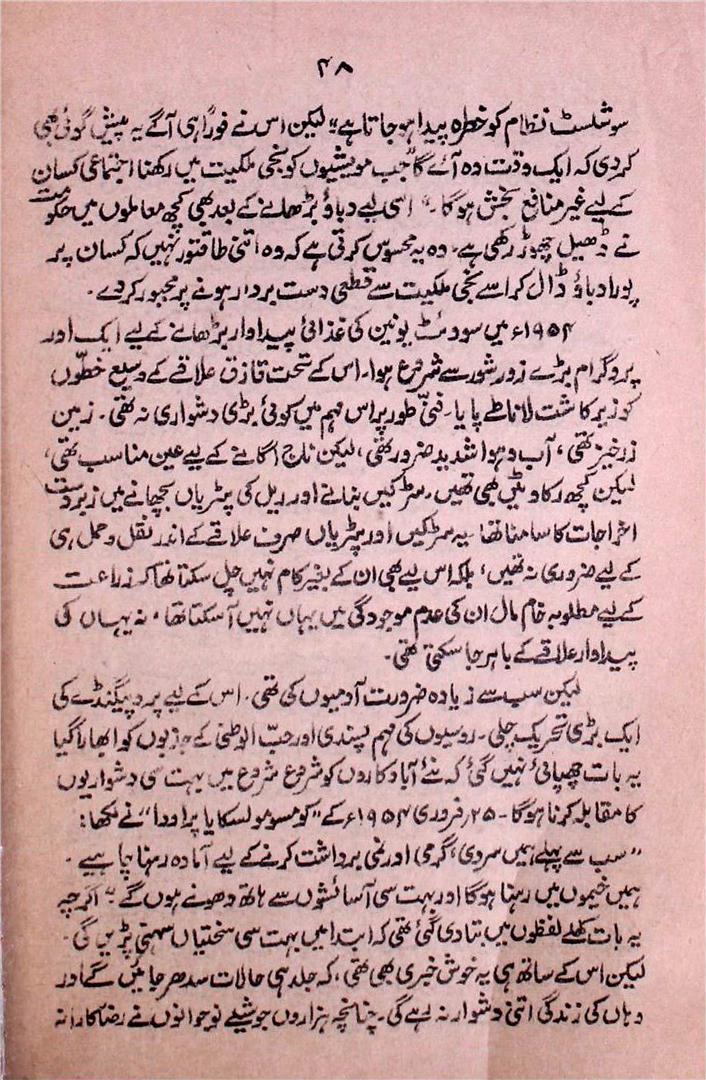 ۴۸
سوشلسٹ نظام کو خطرہ پیدا ہو جاتا ہے“ لیکن اس نے فوراً ہی آگے یہ پیش گوئی بھی
کر دی کہ ایک وقت وہ آئے گا ”جب مویشیوں کو نجی ملکیت میں رکھنا اجتماعی کسان
کے لیے غیر منافع بخش ہوگا۔“ اسی لیے دباؤ بڑھانے کے بعد بھی کچھ معاملوں میں حکومت
نے ڈھیل چھوڑ رکھی ہے۔ وہ یہ محسوس کرتی ہے کہ وہ اتنی طاقتور نہیں کہ کسان پر
پورا دباؤ ڈال کر اسے نجی ملکیت سے قطعی دست بردار ہونے پر مجبور کر دے۔
۱۹۵۴ء میں سووئٹ یونین کی غذائی پیداوار بڑھانے کے لیے ایک اور
پروگرام بڑے زور شور سے شروع ہوا۔ اس کے تحت قازق علاقے کے وسیع خطّوں
کو زیر کاشت لانا طے پایا۔ فنّی طور پر اس مہم میں کوئی بڑی دشواری نہ تھی۔ زمین
زرخیز تھی، آب و ہوا شدید ضرور تھی، لیکن ناج اگانے کے لیے عین مناسب تھی،
لیکن کچھ رکاوٹیں بھی تھیں۔ سڑکیں بنانے اور ریل کی پٹریاں بچھانے میں زبردست
اخراجات کا سامنا تھا۔ یہ سڑکیں اور پٹریاں صرف علاقے کے اندر نقل و حمل ہی
کے لیے ضروری نہ تھیں، بلکہ اس لیے بھی ان کے بغیر کام نہیں چل سکتا تھا کہ زراعت
کے لیے مطلوبہ خام مال ان کی عدم موجودگی میں یہاں نہیں آ سکتا تھا، نہ یہاں کی
پیداوار علاقے کے باہر جا سکتی تھی۔
لیکن سب سے زیادہ ضرورت آدمیوں کی تھی۔ اس کے لیے پروپیگنڈے کی
ایک بڑی تحریک چلی۔ روسیوں کی مہم پسندی اور حبّ الوطنی کے جذبوں کو ابھارا گیا
یہ بات چھپائی نہیں گئی کہ نئے آبادکاروں کو شروع شروع میں بہت سی دشواریوں
کا مقابلہ کرنا ہوگا۔ ۲۵ فروری ۱۹۵۴ء کے ”کومسومولسکایا پراودا“ نے لکھا:
”سب سے پہلے ہمیں سردی، گرمی اور نمی برداشت کرنے کے لیے آمادہ رہنا چاہیے۔
ہمیں خیموں میں رہنا ہوگا اور بہت سی آسائشوں سے ہاتھ دھونے ہوں گے“ اگرچہ
یہ بات کھلے لفظوں میں بتا دی گئی تھی کہ ابتدا میں بہت سی سختیاں سہنی پڑیں گی۔
لیکن اس کے ساتھ ہی یہ خوش خبری بھی تھی، کہ جلد ہی حالات سدھر جائیں گے اور
وہاں کی زندگی اتنی دشوار نہ رہے گی۔ چنانچہ ہزاروں جوشیلے نوجوانوں نے رضاکارانہ